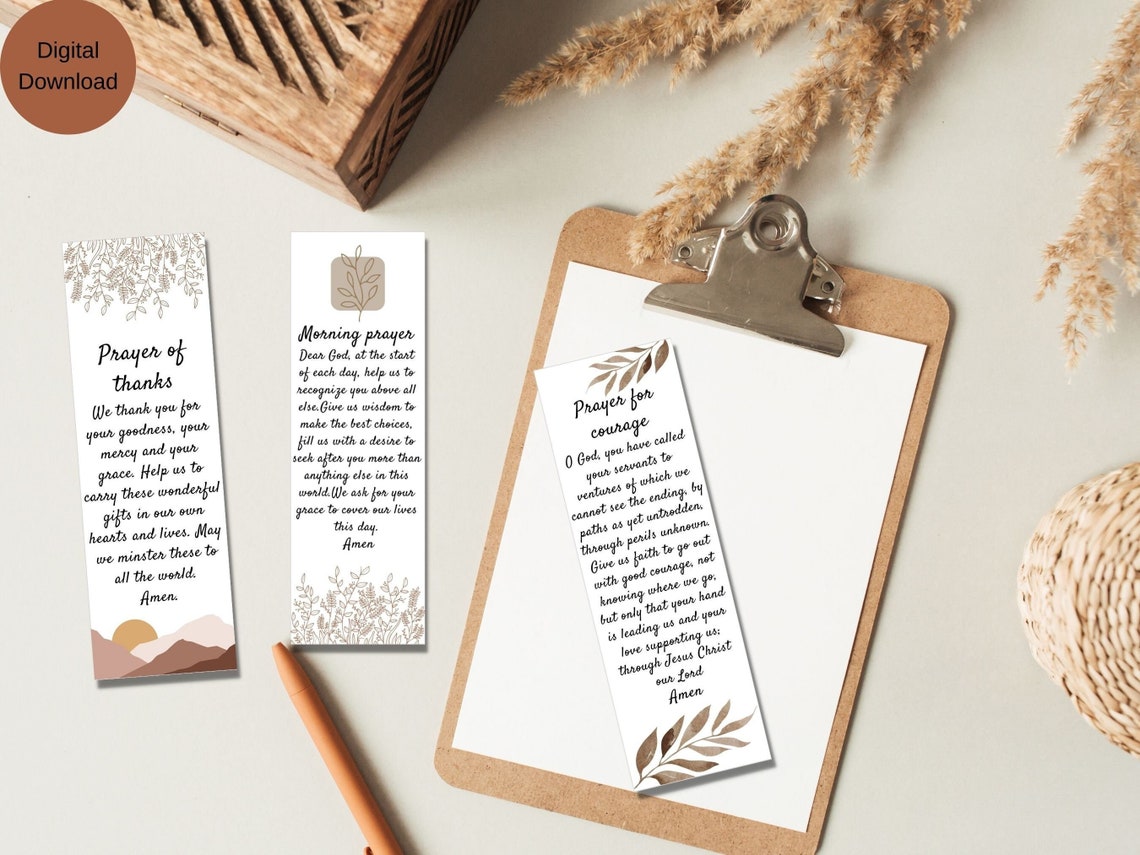 Digital
Download
Prayer of
thanks
We thank you for
your goodness, your
mercy and your
grace. Help us to
carry these wonderful
gifts in our own
hearts and lives. May
we minster these to
all the world.
Amen.
Morning prayer
Dear God, at the start
of each day, help us to
recognize you above all
else.Give us wisdom to
make the best choices,
fill us with a desire to
seek after you more than
anything else in this
world.We ask for your
grace to cover our lives
this day.
Amen
Prayer for
courage
O God, you have called
your servants to
ventures of which we
cannot see the ending, by
paths as yet untrodden,
through perils unknown.
Give us faith to go out
with good courage, not
knowing where we go,
but only that your hand
is leading us and your
love supporting us;
through Jesus Christ
our Lord
Amen